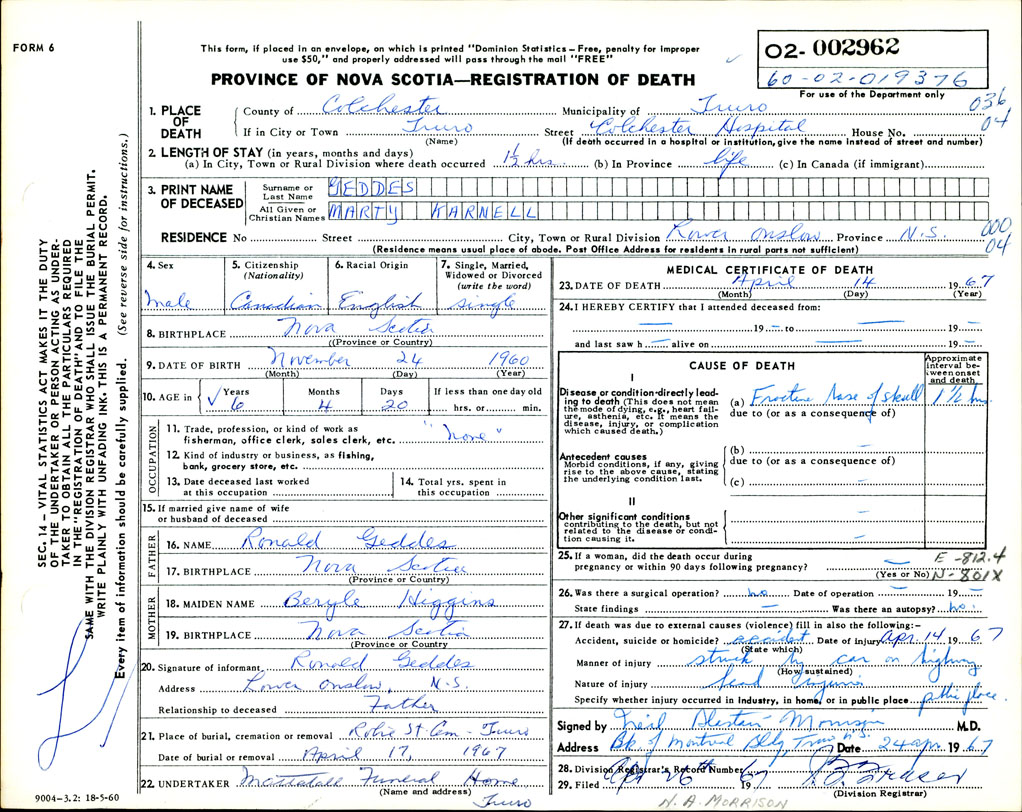 FORM 6
This form, if placed in an envelope, on which is printed "Dominion Statistics – Free, penalty for improper
use $50," and properly addressed will pass through the mail "FREE"
PROVINCE OF NOVA SCOTIA—REGISTRATION OF DEATH
O2- 002962
60-02-019376
For use of the Department only
036
04
1. PLACE OF DEATH
County of Colchester Municipality of Truro
If in City or Town Truro Street Colchester Hospital House No.
(Name) (If death occurred in a hospital or institution, give the name instead of street and number)
2. LENGTH OF STAY (in years, months and days)
(a) In City, Town or Rural Division where death occurred 1½ hrs. (b) In Province life (c) In Canada (if immigrant)
3. PRINT NAME OF DECEASED
Surname or Last Name GEDDES
All Given or Christian Names MARTY KARNELL
RESIDENCE No Street City, Town or Rural Division Lower Onslow Province N.S.
000
04
(Residence means usual place of abode. Post Office Address for residents in rural parts not sufficient)
4. Sex
male
5. Citizenship (Nationality)
Canadian
6. Racial Origin
English
7. Single, Married, Widowed or Divorced (write the word)
single
8. BIRTHPLACE Nova Scotia
(Province or Country)
9. DATE OF BIRTH November 24 1960
(Month) (Day) (Year)
10. AGE in
Years 6
Months 4
Days 20
If less than one day old
hrs. or min.
OCCUPATION
11. Trade, profession, or kind of work as fisherman, office clerk, sales clerk, etc. "None"
12. Kind of industry or business, as fishing, bank, grocery store, etc.
13. Date deceased last worked at this occupation
14. Total yrs. spent in this occupation
15. If married give name of wife or husband of deceased
FATHER
16. NAME Ronald Geddes
17. BIRTHPLACE Nova Scotia
(Province or Country)
MOTHER
18. MAIDEN NAME Beryle Higgins
19. BIRTHPLACE Nova Scotia
(Province or Country
20. Signature of informant Ronald Geddes
Address Lower Onslow, N.S.
Relationship to deceased Father
21. Place of burial, cremation or removal Robie St Cem - Truro
Date of burial or removal April 17, 1967
22. UNDERTAKER Mattatall Funeral Home
(Name and address) Truro
9004-3.2: 18-5-60
MEDICAL CERTIFICATE OF DEATH
23. DATE OF DEATH April 14 1967
(Month) (Day) (Year)
24. I HEREBY CERTIFY that I attended deceased from:
— 19 — to — 19 —
and last saw h — alive on — 19 —
CAUSE OF DEATH
Approximate interval between onset and death
I
Disease or condition directly leading to death (This does not mean the mode of dying, e.g., heart failure, asthenia, etc. It means the disease, injury, or complication which caused death.)
(a) Fracture base of skull 1½ hrs
due to (or as a consequence of)
Antecedent causes
Morbid conditions, if any, giving rise to the above cause, stating the underlying condition last.
(b) —
due to (or as a consequence of)
(c) —
II
Other significant conditions
contributing to the death, but not related to the disease or condition causing it.
25. If a woman, did the death occur during
pregnancy or within 90 days following pregnancy? —
(Yes or No)
E -812.4
N-801X
26. Was there a surgical operation? no Date of operation — 19 —
State findings — Was there an autopsy? no.
27. If death was due to external causes (violence) fill in also the following:–
Accident, suicide or homicide? accident Date of injury Apr. 14 1967
(State which)
Manner of injury struck by car on highway
(How sustained)
Nature of injury head injuries
Specify whether injury occurred in industry, in home, or in public place public place.
Signed by Neil Morrison M.D.
Address Bk of Montreal Bldg, Truro N.S. Date 24 apr. 1967
28. Division Registrar's Record Number
29. Filed Apr 26th 1967 Fraser
(Division Registrar)
N. A. MORRISON
SEC. 14 – VITAL STATISTICS ACT MAKES IT THE DUTY
OF THE UNDERTAKER OR PERSON ACTING AS UNDER-
TAKER TO OBTAIN ALL THE PARTICULARS REQUIRED
IN THE "REGISTRATION OF DEATH" AND TO FILE THE
SAME WITH THE DIVISION REGISTRAR WHO SHALL ISSUE THE BURIAL PERMIT.
WRITE PLAINLY WITH UNFADING INK. THIS IS A PERMANENT RECORD.
Every item of information should be carefully supplied. (See reverse side for instructions.)